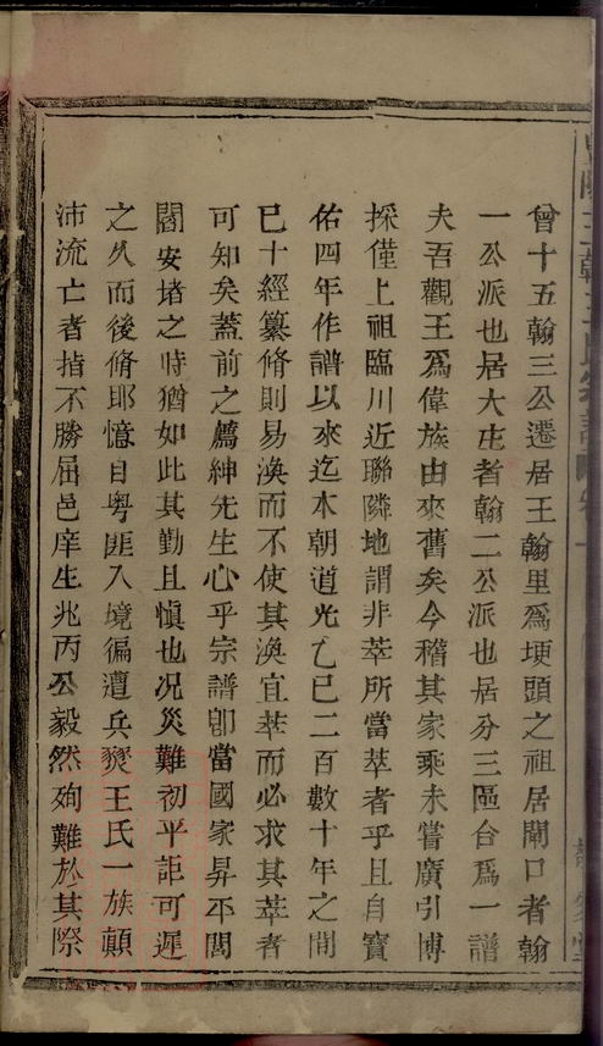 曾十五翰三公遷居王翰里爲埂頭之祖居閘口者翰
一公派也居大庄者翰二公派也居分三區合爲一譜
夫吾觀王爲偉族由來舊矣今稽其家乘未嘗廣引博
採僅上祖臨川近聯隣地謂非萃所當萃者乎且自寶
佑四年作譜以來迄本朝道光乙巳二百數十年之間
已十經纂脩則易渙而不使其渙宜萃而必求其萃者
可知矣蓋前之薦紳先生心乎宗譜卽當國家昇平閭
閻安堵之時猶如此其勤且慎也况災難初平詎可遲
之久而後脩耶憶自粤匪入境徧遭兵燹王氏一族顛
沛流亡者指不勝屈邑庠生兆丙公毅然殉難於其際